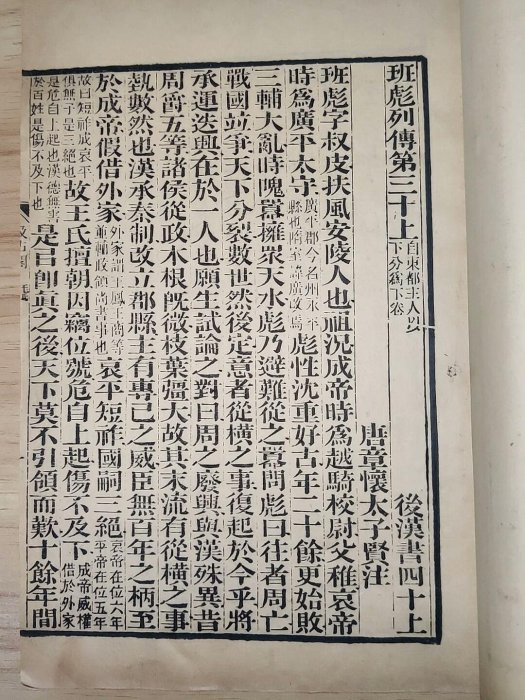 班彪列傳第三十上
自東都主人以
下分爲下卷
後漢書四十上
唐章懷太子賢注
班彪字叔皮扶風安陵人也祖況成帝時爲越騎校尉父稚哀帝
時爲廣平太守
廣平郡今名州永平
縣也隋室諱廣改焉
彪性沈重好古年二十餘更始敗
三輔大亂時隗囂擁衆天水彪乃避難從之囂問彪曰往者周亡
戰國竝爭天下分裂數世然後定意者從橫之事復起於今乎將
承運迭興在於一人也願生試論之對曰周之廢興與漢殊異昔
周爵五等諸侯從政本根旣微枝葉彊大故其末流有從橫之事
埶數然也漢承秦制改立郡縣主有專己之威臣無百年之柄至
於成帝假借外家
外家謂王鳳王商等
並輔政領尚書事也
哀平短祚國嗣三絕
哀帝在位六年
平帝在位五年
故曰短祚成哀平
俱無子是三絕也
故王氏擅朝因竊位號危自上起傷不及下
成帝威權
借於外家
是危自上起也漢德無害
於百姓是傷不及下也
是㠯卽眞之後天下莫不引領而歎十餘年間